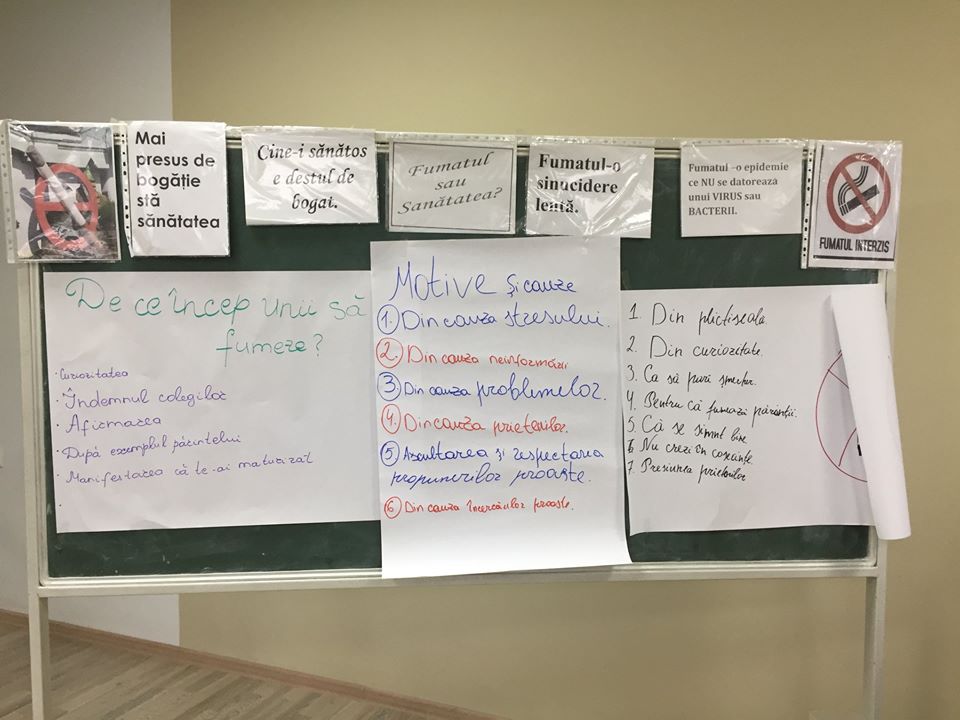 Mai
presus de
bogăție
stă
sănătatea
Cine-i sănătos
e destul de
bogat.
Fumatul
sau
Sanătatea?
Fumatul-o
sinucidere
lentă.
Fumatul –o epidemie
ce NU se datorează
unui VIRUS sau
BACTERII.
FUMATUL INTERZIS
De ce încep unii să
fumeze?
· Curiozitatea
· Îndemnul colegilor
· Afirmarea
· După exemplul părintelui
· Manifestarea că te-ai maturizat
Motive și cauze
1. Din cauza stresului.
2. Din cauza neinformării
3 Din cauza problemelor.
4. Din cauza prietenilor.
5 Ascultarea și respectarea
propunerilor proaste.
6. Din cauza încercărilor proaste.
1. Din plictiseala.
2. Din curiozitate.
3. Ca să pari
4. Pentru că fumează părinții.
5. Că se simt bine
6. Nu crezi în
7. Presiunea prietenilor